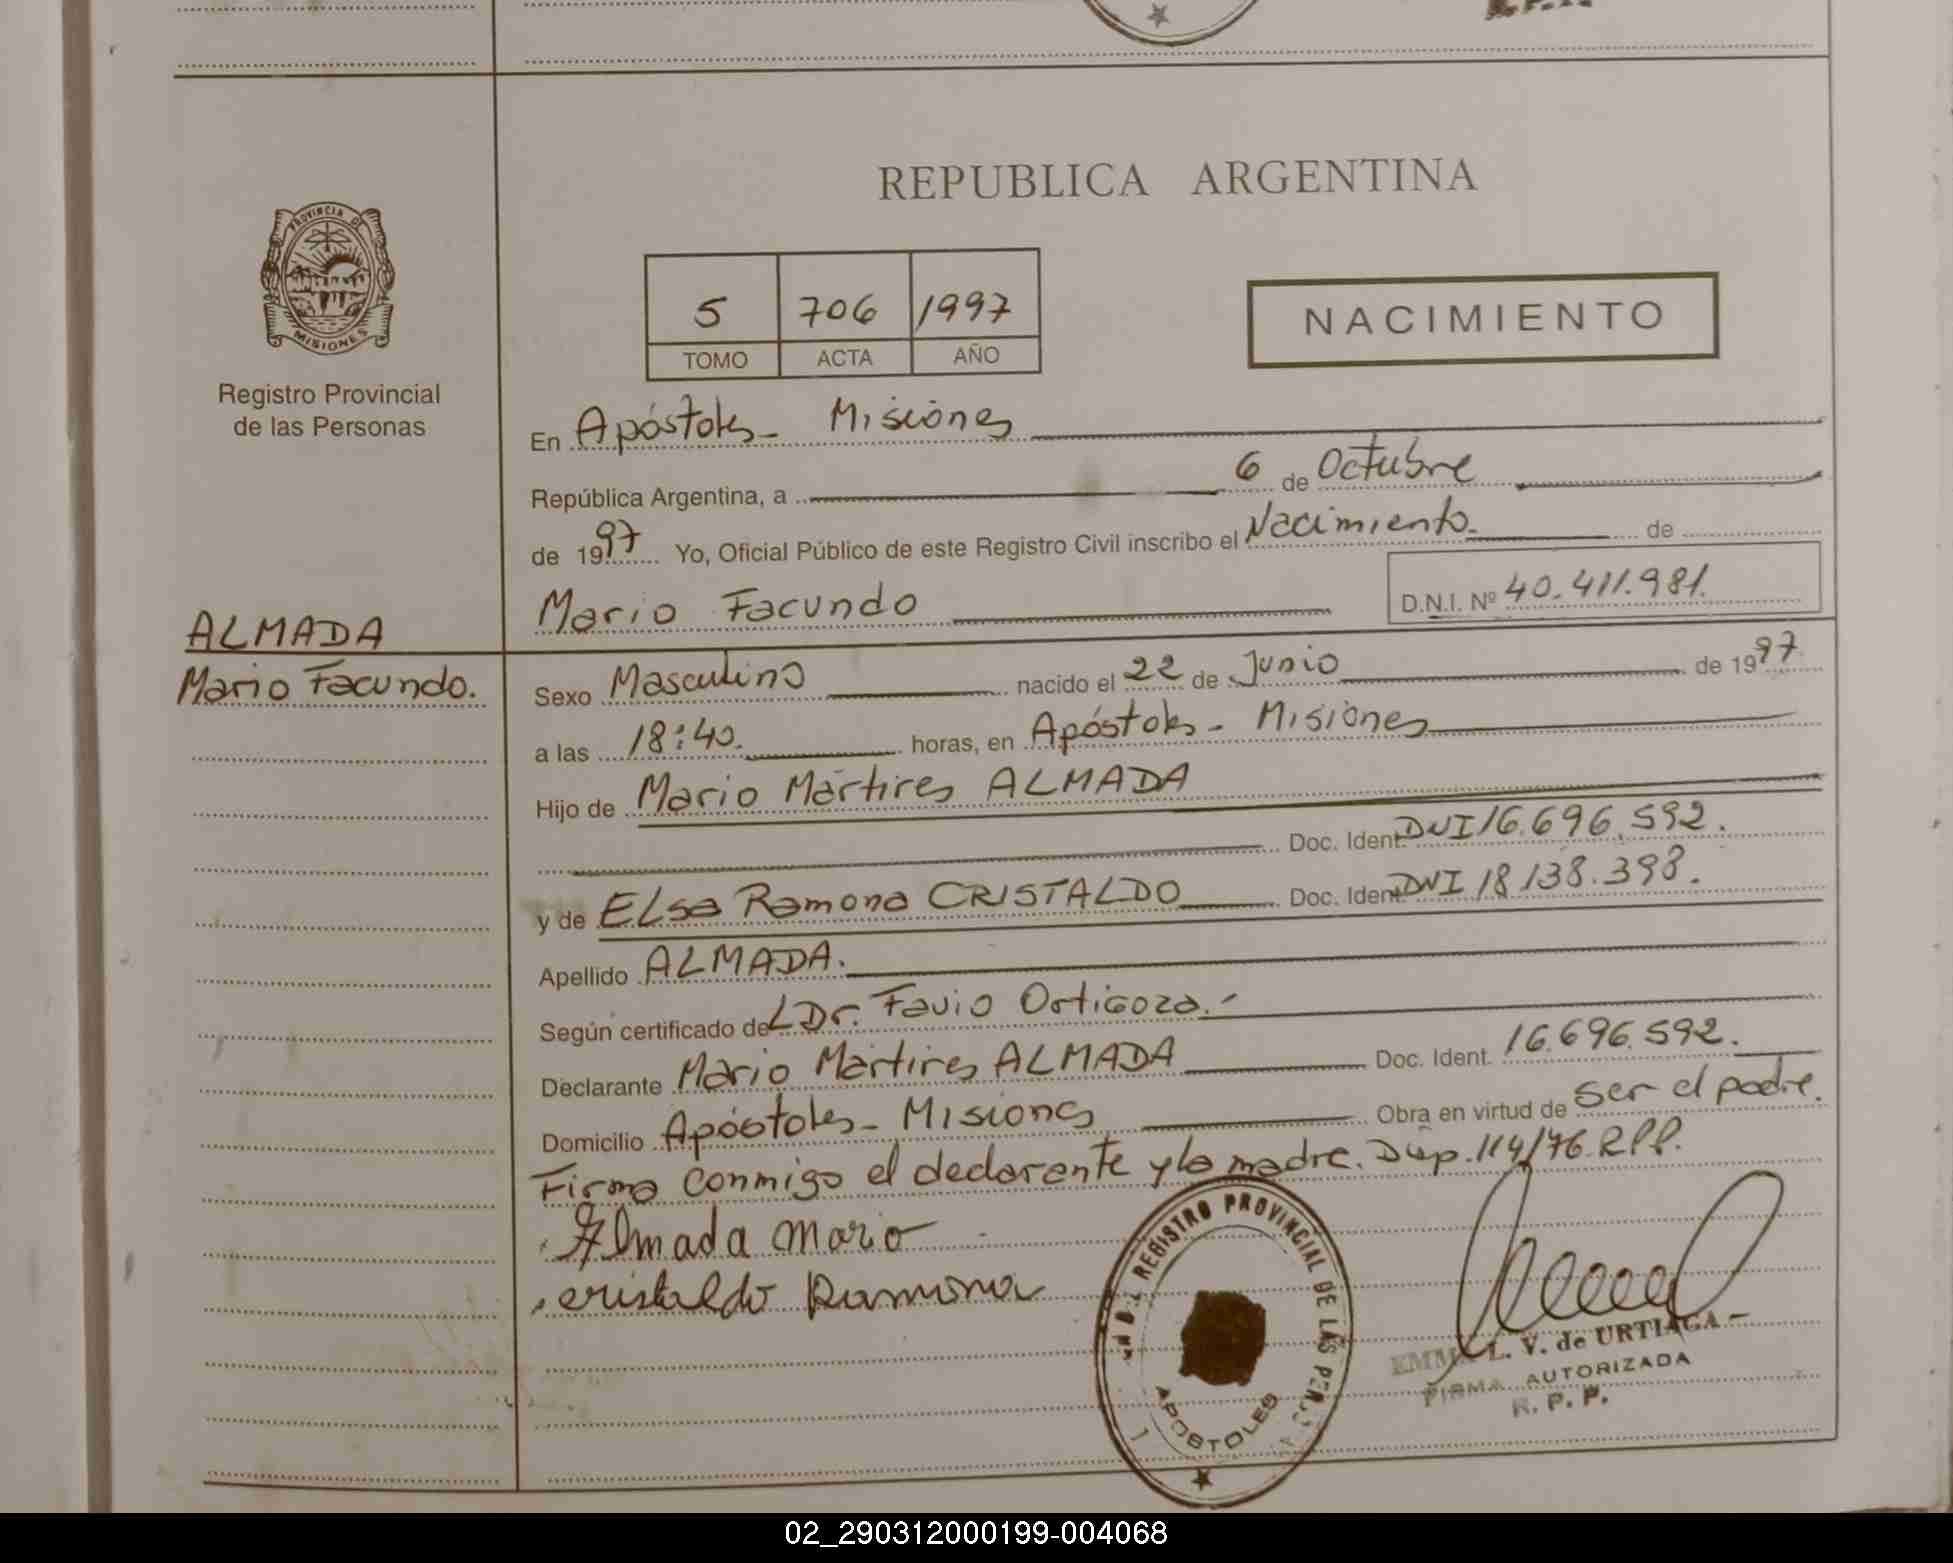 REPUBLICA ARGENTINA
PROVINCIA DE
MISIONES
Registro Provincial
de las Personas
5 706 1997
TOMO ACTA AÑO
NACIMIENTO
En Apóstoles - Misiones
República Argentina, a 6 de Octubre
de 1997 Yo, Oficial Público de este Registro Civil inscribo el Nacimiento. de
Mario Facundo D.N.I. Nº 40.411.981.
ALMADA
Mario Facundo.
Sexo Masculino nacido el 22 de Junio de 1997
a las 18:40. horas, en Apóstoles - Misiones
Hijo de Mario Mártires ALMADA
Doc. Ident. DNI 16.696.592.
y de ELsa Ramona CRISTALDO Doc. Ident. DNI 18.138.398.
Apellido ALMADA.
Según certificado de Dr. Favio Ortigoza.-
Declarante Mario Mártires ALMADA Doc. Ident. 16.696.592.
Domicilio Apóstoles - Misiones Obra en virtud de ser el padre.
Firma conmigo el declarante y la madre. Disp. 114/76 R.P.P.
Almada Mario
cristaldo Ramona
REGISTRO PROVINCIAL DE LAS PERS
APOSTOLES
EMMA L. V. de URTIAGA
FIRMA AUTORIZADA
R. P. P.
02_290312000199-004068